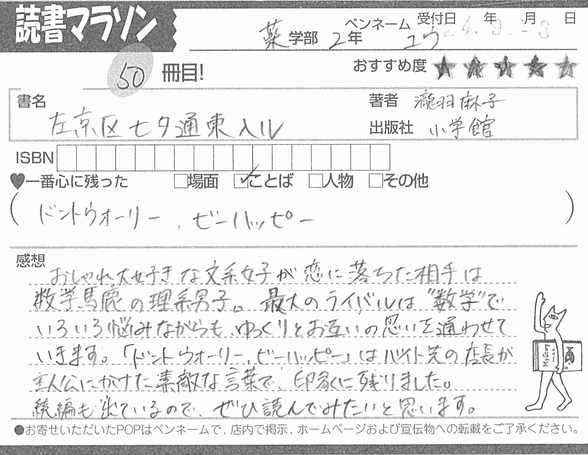 読書マラソン
薬学部 2年 ペンネーム ユウ 受付日 年 月 日
50 冊目! おすすめ度 ★★★★★
書名 左京区七夕通東入ル
著者 瀧羽麻子
出版社 小学館
ISBN
♥一番心に残った □場面 ☑ことば □人物 □その他
(ドントウォーリー、ビーハッピー)
感想
おしゃれ大好きな文系女子が恋に落ちた相手は
数学馬鹿の理系男子。最大のライバルは"数学"で
いろいろ悩みながらも、ゆっくりとお互いの思いを通わせて
いきます。「ドントウォーリー、ビーハッピー」はバイト先の店長が
主人公にかけた素敵な言葉で、印象に残りました。
続編も出ているので、ぜひ読んでみたいと思います。
●お寄せいただいたPOPはペンネームで、店内で掲示、ホームページおよび宣伝物への転載をご了承ください。